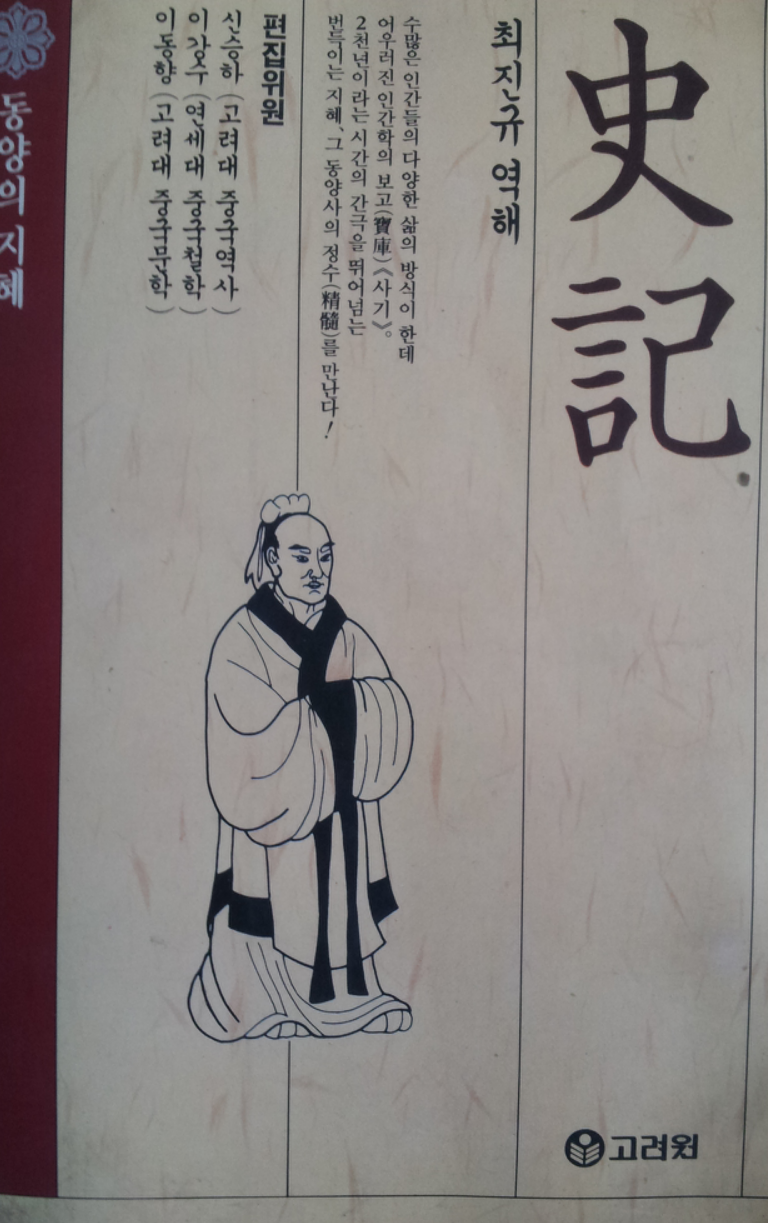 史記
최진규 역해
수많은 인간들의 다양한 삶의 방식이 한데
어우러진 인간학의 보고(寶庫)《사기》。
2천년이라는 시간의 간극을 뛰어넘는
번득이는 지혜、그 동양사의 정수(精髓)를 만난다!
편집위원
신승하(고려대 중국역사)
이강수(연세대 중국철학)
이동향(고려대 중국문학)
동양의 지혜
고려원